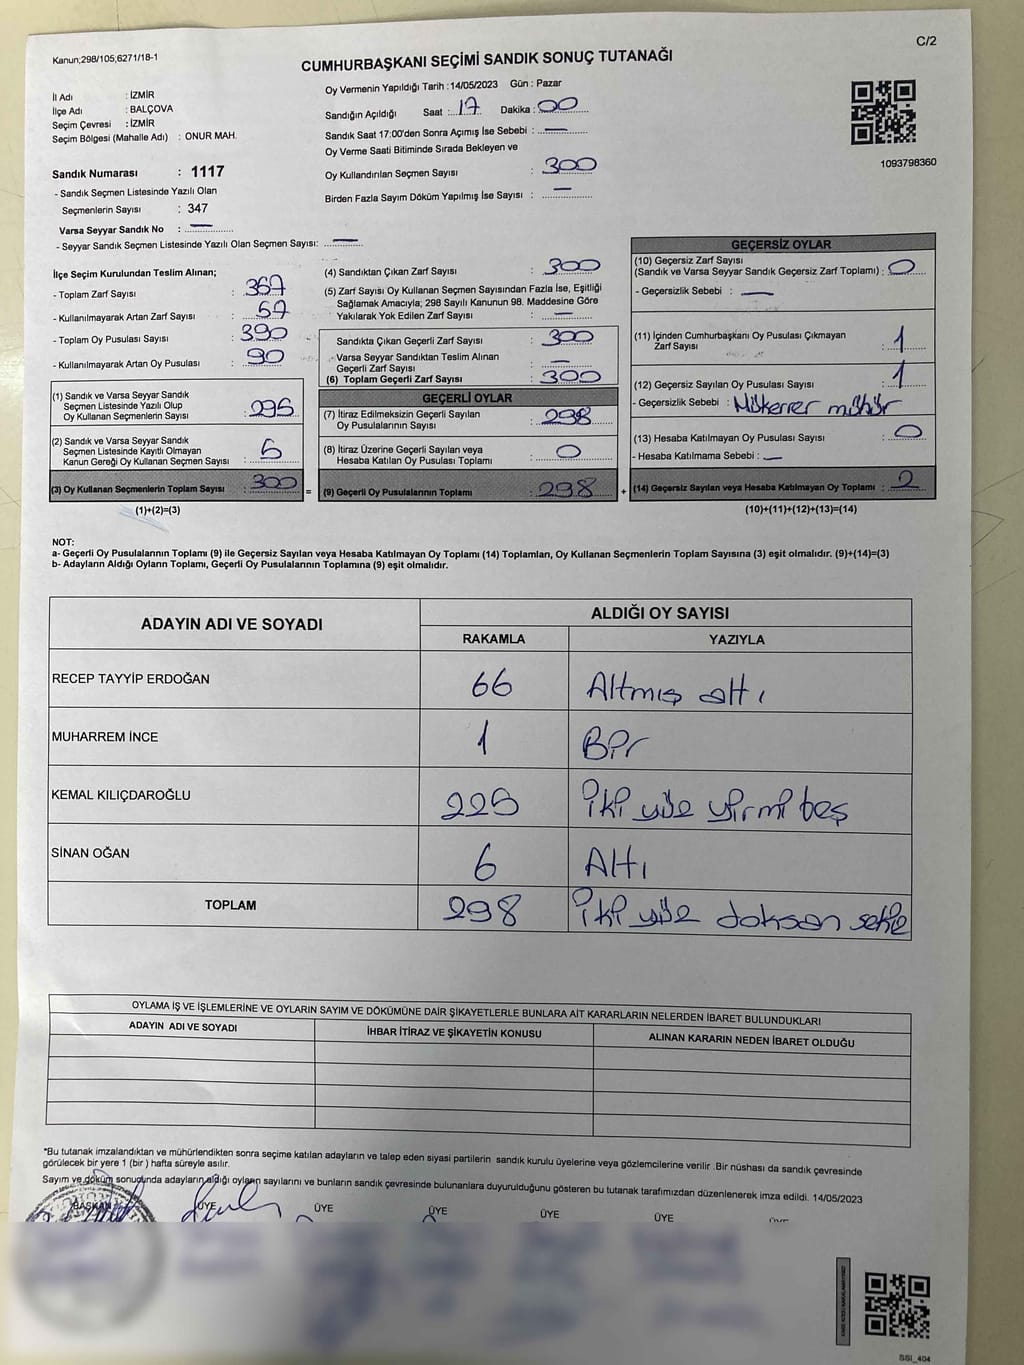 Kanun;298/105;6271/18-1
C/2
CUMHURBAŞKANI SEÇİMİ SANDIK SONUÇ TUTANAĞI
İl Adı : İZMİR
İlçe Adı : BALÇOVA
Seçim Çevresi : İZMİR
Seçim Bölgesi (Mahalle Adı) : ONUR MAH.
Sandık Numarası : 1117
- Sandık Seçmen Listesinde Yazılı Olan
Seçmenlerin Sayısı : 347
Varsa Seyyar Sandık No : —
- Seyyar Sandık Seçmen Listesinde Yazılı Olan Seçmen Sayısı: —
Oy Vermenin Yapıldığı Tarih : 14/05/2023 Gün : Pazar
Sandığın Açıldığı Saat : 17 Dakika : 00
Sandık Saat 17:00'den Sonra Açımış İse Sebebi : —
Oy Verme Saati Bitiminde Sırada Bekleyen ve
Oy Kullandırılan Seçmen Sayısı : 300
Birden Fazla Sayım Döküm Yapılmış İse Sayısı : —
1093798360
İlçe Seçim Kurulundan Teslim Alınan;
- Toplam Zarf Sayısı : 367
- Kullanılmayarak Artan Zarf Sayısı : 67
- Toplam Oy Pusulası Sayısı : 390
- Kullanılmayarak Artan Oy Pusulası : 90
(1) Sandık ve Varsa Seyyar Sandık
Seçmen Listesinde Yazılı Olup
Oy Kullanan Seçmenlerin Sayısı : 295
(2) Sandık ve Varsa Seyyar Sandık
Seçmen Listesinde Kayıtlı Olmayan
Kanun Gereği Oy Kullanan Seçmen Sayısı : 5
(3) Oy Kullanan Seçmenlerin Toplam Sayısı : 300 =
(1)+(2)=(3)
(4) Sandıktan Çıkan Zarf Sayısı : 300
(5) Zarf Sayısı Oy Kullanan Seçmen Sayısından Fazla İse, Eşitliği
Sağlamak Amacıyla; 298 Sayılı Kanunun 98. Maddesine Göre
Yakılarak Yok Edilen Zarf Sayısı : —
Sandıkta Çıkan Geçerli Zarf Sayısı : 300
Varsa Seyyar Sandıktan Teslim Alınan
Geçerli Zarf Sayısı : —
(6) Toplam Geçerli Zarf Sayısı : 300
GEÇERLİ OYLAR
(7) İtiraz Edilmeksizin Geçerli Sayılan
Oy Pusulalarının Sayısı : 298
(8) İtiraz Üzerine Geçerli Sayılan veya
Hesaba Katılan Oy Pusulası Toplamı : 0
(9) Geçerli Oy Pusulalarının Toplamı : 298 +
GEÇERSİZ OYLAR
(10) Geçersiz Zarf Sayısı
(Sandık ve Varsa Seyyar Sandık Geçersiz Zarf Toplamı) : 0
- Geçersizlik Sebebi : —
(11) İçinden Cumhurbaşkanı Oy Pusulası Çıkmayan
Zarf Sayısı : 1
(12) Geçersiz Sayılan Oy Pusulası Sayısı : 1
- Geçersizlik Sebebi : Mükerrer mühür
(13) Hesaba Katılmayan Oy Pusulası Sayısı : 0
- Hesaba Katılmama Sebebi : —
(14) Geçersiz Sayılan veya Hesaba Katılmayan Oy Toplamı : 2
(10)+(11)+(12)+(13)=(14)
NOT:
a- Geçerli Oy Pusulalarının Toplamı (9) ile Geçersiz Sayılan veya Hesaba Katılmayan Oy Toplamı (14) Toplamları, Oy Kullanan Seçmenlerin Toplam Sayısına (3) eşit olmalıdır. (9)+(14)=(3)
b- Adayların Aldığı Oyların Toplamı, Geçerli Oy Pusulalarının Toplamına (9) eşit olmalıdır.
ADAYIN ADI VE SOYADI
ALDIĞI OY SAYISI
RAKAMLA YAZIYLA
RECEP TAYYİP ERDOĞAN 66 Altmış altı
MUHARREM İNCE 1 Bir
KEMAL KILIÇDAROĞLU 225 İki yüz yirmi beş
SİNAN OĞAN 6 Altı
TOPLAM 298 İki yüz doksan sekiz
OYLAMA İŞ VE İŞLEMLERİNE VE OYLARIN SAYIM VE DÖKÜMÜNE DAİR ŞİKAYETLERLE BUNLARA AİT KARARLARIN NELERDEN İBARET BULUNDUKLARI
ADAYIN ADI VE SOYADI İHBAR İTİRAZ VE ŞİKAYETİN KONUSU ALINAN KARARIN NEDEN İBARET OLDUĞU
*Bu tutanak imzalandıktan ve mühürlendikten sonra seçime katılan adayların ve talep eden siyasi partilerin sandık kurulu üyelerine veya gözlemcilerine verilir .Bir nüshası da sandık çevresinde
görülecek bir yere 1 (bir ) hafta süreyle asılır.
Sayım ve döküm sonucunda adayların aldığı oyların sayılarını ve bunların sandık çevresinde bulunanlara duyurulduğunu gösteren bu tutanak tarafımızdan düzenlenerek imza edildi. 14/05/2023
BAŞKAN ÜYE ÜYE ÜYE ÜYE ÜYE
SSI_404